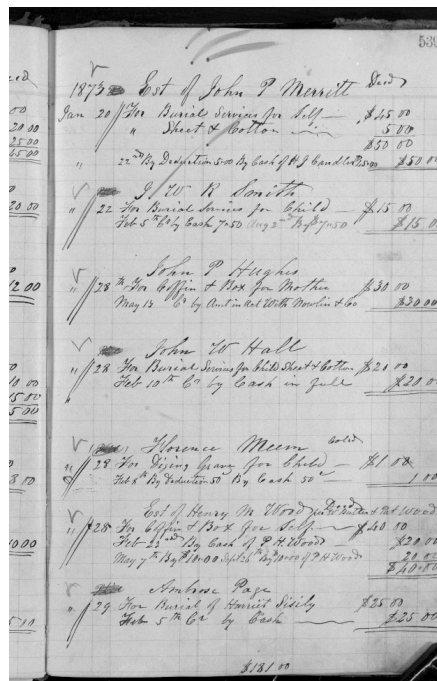 539
1873 Est of John P Merritt Decd
Jan 20 For Burial Services for Self — $45 00
" Sheet & Cotton 5 00
$50 00
" 22nd By Deduction 5.00 By Cash of H J Candler 45.00 $50 00
J W R Smith
" 22 For Burial Services for Child — $15 00
Feb 5th Cr by Cash 7.50 Aug 2nd By $7.50 $15 00
John P Hughes
" 28th For Coffin & Box for Mother $30 00
May 13 Cr by Amt in act With Nowlin & Co $30 00
John W Hall
" 28 For Burial Services for Child Sheet & Cotton $20 00
Feb 10th Cr by Cash in full $20 00
Florence Meem Cold
28 For Diging Grave for Child — $1 00
Feb 8th By Deduction 50 By Cash 50 1 00
Est of Henry M Wood Decd
" 28 For Coffin & Box for Self — $40 00
Feb 22nd By Cash of P. H. Wood $20 00
May 7th By $10.00 Sept 26th By $10.00 of P H Wood 20 00
$40.00
Ambrose Page
" 29 For Burial of Harriet Sisily $25 00
Feb 5th Cr by Cash $25 00
$181 00
20 00
25 00
45 00
20 00
12 00
10 00
15 00
5 00
8 00